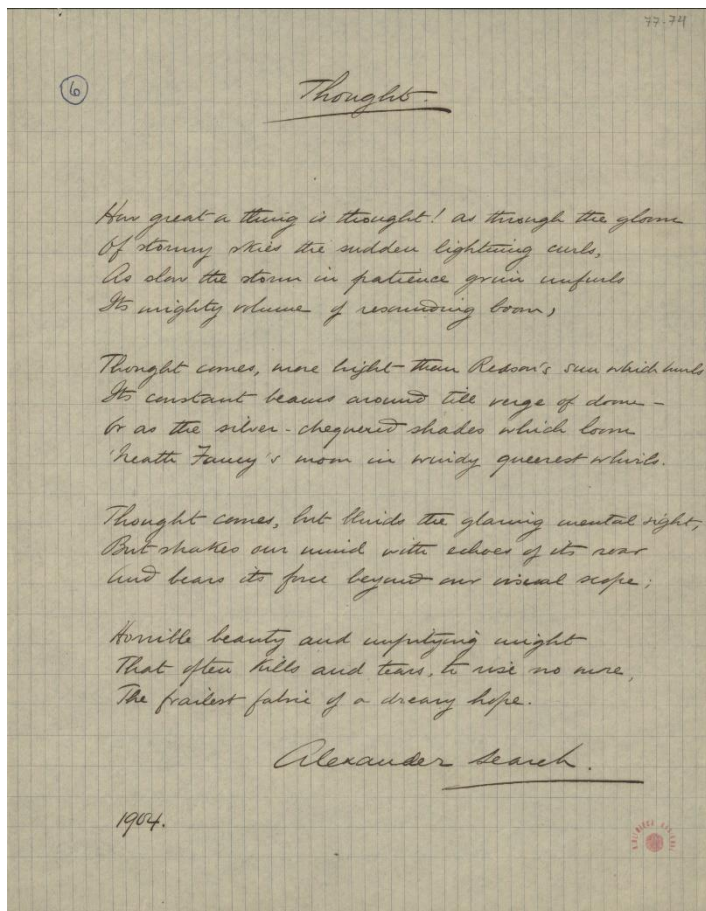 77-74
6
Thought.
How great a thing is thought! as through the gloom
Of stormy skies the sudden lightning curls,
As slow the storm in patience grim unfurls
Its mighty volume of resounding boom,
Thought comes, more bright than Reason's sun which hurls
Its constant beams around till verge of doom -
Or as the silver-chequered shades which loom
'Neath Fancy's moon in windy queerest whirls.
Thought comes, but blinds the glaring mental sight,
But shakes our mind with echoes of its roar
And bears its force beyond our visual scope;
Horrible beauty and unpitying might
That often kills and tears, to rise no more,
The frailest fabric of a dreary hope.
Alexander Search.
1904.